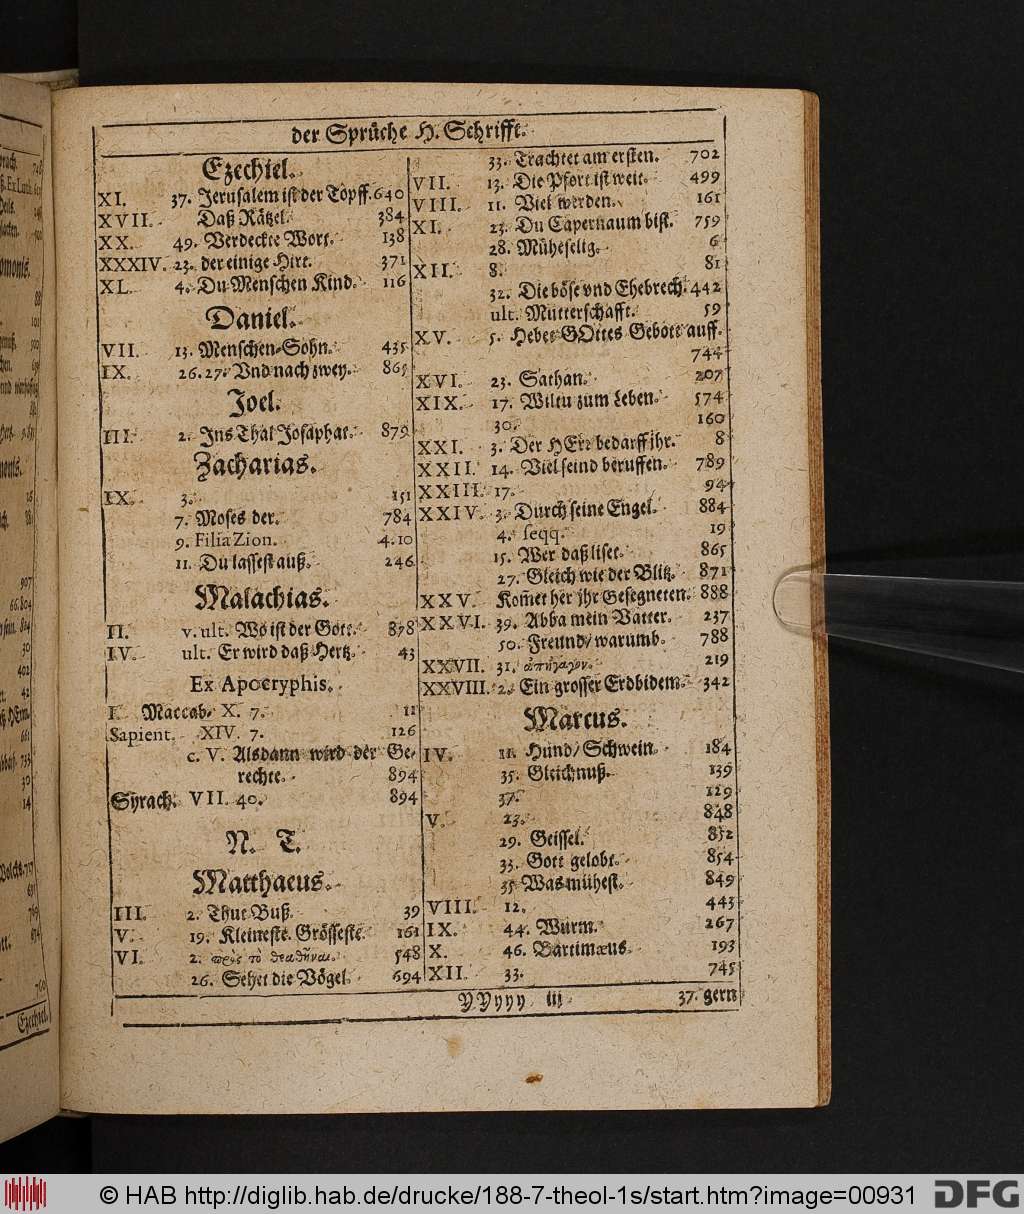 der Sprüche H. Schrifft.
Ezechiel.
XI. 37. Jerusalem ist der Töpff. 640
XVII. Daß Rätzel. 384
XX. 49. Verdeckte Wort. 138
XXXIV. 23. der einige Hirt. 371
XL. 4. Du Menschen Kind. 116
Daniel.
VII. 13. Menschen-Sohn. 435
IX. 26. 27. Vnd nach zwey. 865
Joel.
III. 2. Ins Thal Josaphat. 879
Zacharias.
IX. 3. 151
7. Moses der. 784
9. Filia Zion. 4.10
11. Du lassest auß. 246
Malachias.
II. v. ult. Wo ist der Gott. 878
IV. ult. Er wird daß Hertz. 43
Ex Apocryphis.
I. Maccab. X. 7. 11
Sapient. XIV. 7. 126
c. V. Alsdann wird der Ge-
rechte. 894
Syrach. VII. 40. 894
N. T.
Matthaeus.
III. 2. Thut Buß. 39
V. 19. Kleineste. Grösseste. 161
VI. 2. πρὸς τὸ θεαθῆναι. 548
26. Sehet die Vögel. 694
33. Trachtet am ersten. 702
VII. 13. Die Pfort ist weit. 499
VIII. 11. Viel werden. 161
XI. 23. Du Capernaum bist. 759
28. Müheselig. 6
XII. 8. 81
32. Die böse vnd Ehebrech. 442
ult. Mutterschafft. 59
XV. 5. Hebet GOttes Gebott auff.
744
XVI. 23. Sathan. 207
XIX. 17. Wiltu zum Leben. 574
30. 160
XXI. 3. Der HErr bedarff ihr. 8
XXII. 14. Viel seind beruffen. 789
XXIII. 17. 94
XXIV. 3. Durch seine Engel. 884
4. seqq. 19
15. Wer daß liset. 865
27. Gleich wie der Blitz. 871
XXV. Kom̃et her jhr Gesegneten. 888
XXVI. 39. Abba mein Vatter. 237
50. Freund/ warumb. 788
XXVII. 31. ἀπήγαγον. 219
XXVIII. 2. Ein grosser Erdbidem. 342
Marcus.
IV. 11. Hund/ Schwein. 184
35. Gleichnuß. 139
37. 129
V. 23. 848
29. Geissel. 852
33. Gott gelobt. 854
35 Was mühest. 849
VIII. 12. 443
IX. 44. Wurm. 267
X. 46. Bartimæus. 193
XII. 33. 745
YYyyy iij
37. gern
Ezechiel.
© HAB http://diglib.hab.de/drucke/188-7-theol-1s/start.htm?image=00931
DFG